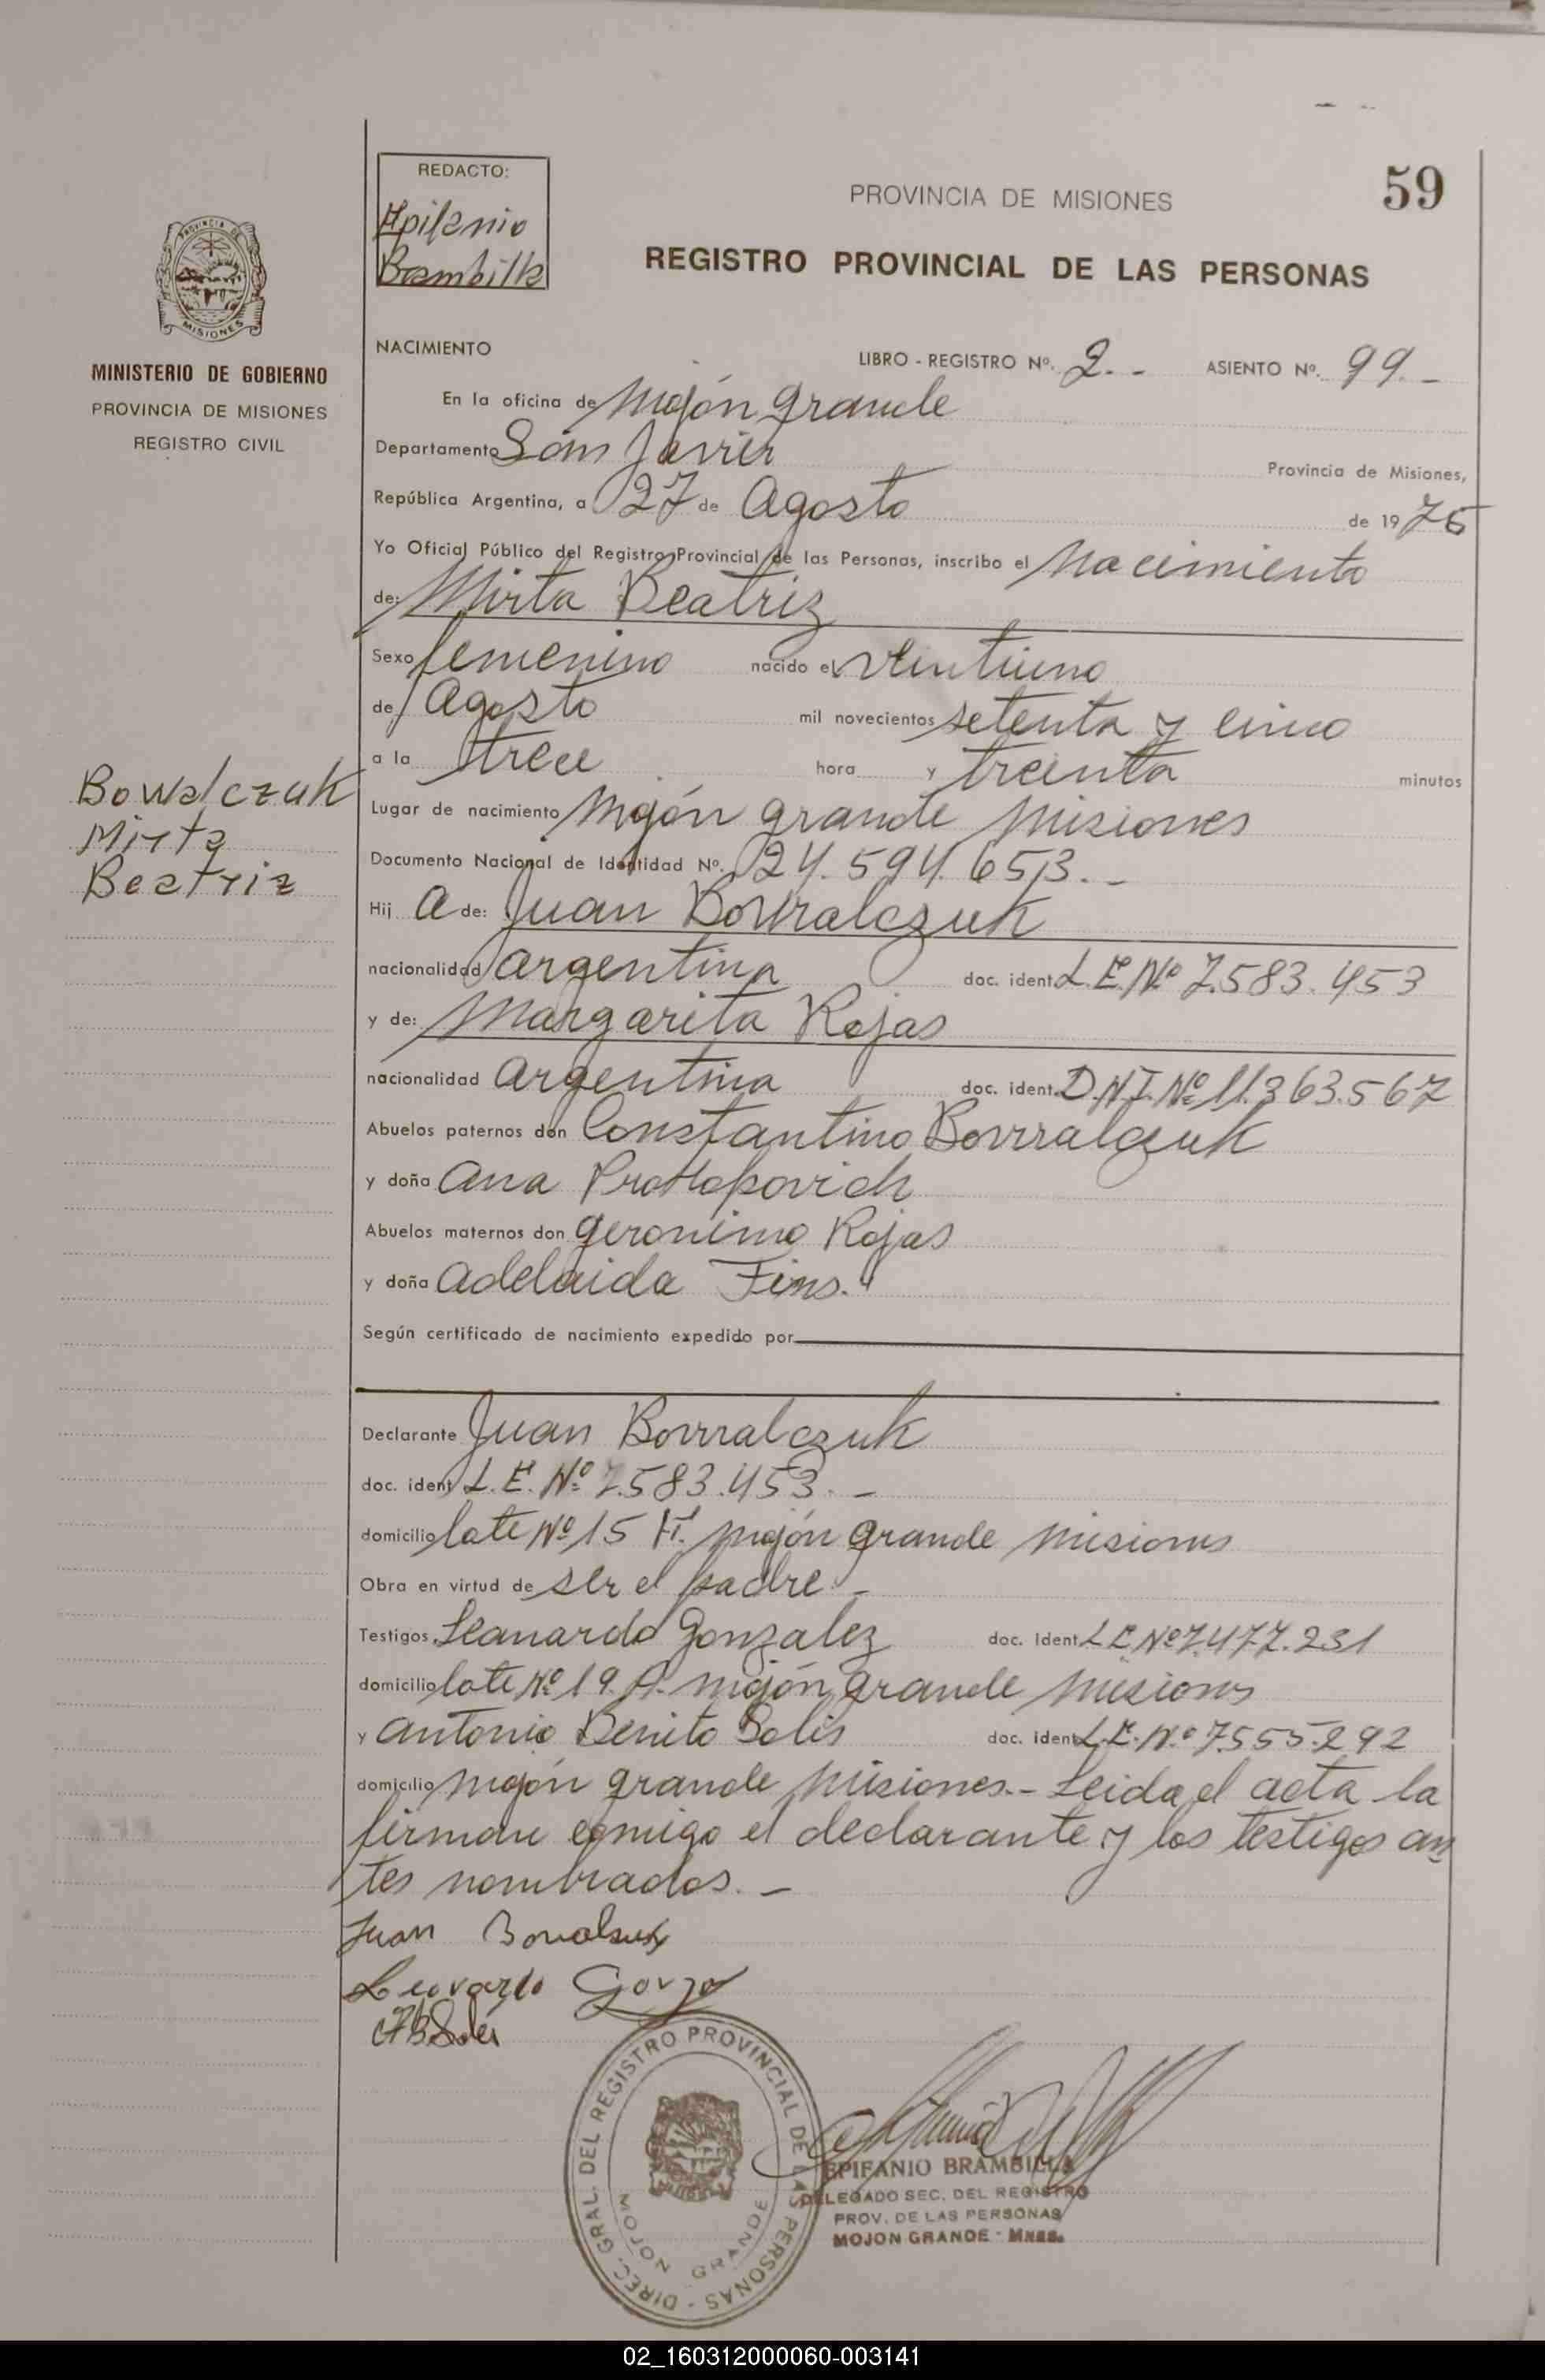 REDACTO:
Epifanio
Brambilla
PROVINCIA DE MISIONES
59
REGISTRO PROVINCIAL DE LAS PERSONAS
PROVINCIA DE
MISIONES
MINISTERIO DE GOBIERNO
PROVINCIA DE MISIONES
REGISTRO CIVIL
NACIMIENTO LIBRO - REGISTRO Nº. 2.- ASIENTO Nº. 99.-
En la oficina de Mojón grande
Departamento San Javier Provincia de Misiones,
República Argentina, a 27 de Agosto de 1975
Yo Oficial Público del Registro Provincial de las Personas, inscribo el Nacimiento
de: Mirta Beatriz
Sexo femenino nacido el ventiuno
de Agosto mil novecientos setenta y cinco
a la trece hora y treinta minutos
Bowalczuk
Mirta
Beatriz
Lugar de nacimiento Mojón grande Misiones
Documento Nacional de Identidad Nº. 24.594.653.-
Hij a de: Juan Bowalczuk
nacionalidad argentina doc. ident. L.E. Nº 7.583.453
y de: Margarita Rojas
nacionalidad argentina doc. ident. D.N.I. Nº 11.363.567
Abuelos paternos don Constantino Bowalczuk
y doña Ana Protopovich
Abuelos maternos don Geronimo Rojas
y doña Adelaida Fins.
Según certificado de nacimiento expedido por
Declarante Juan Bowalczuk
doc. ident L.E. Nº 7.583.453.-
domicilio lote Nº 15 Mojón grande Misiones
Obra en virtud de ser el padre.-
Testigos, Leanardo Gonzalez doc. ident L.E. Nº 7.477.231
domicilio lote Nº 19 A. Mojón grande Misiones
y Antonio Benito Solis doc. ident L.E. Nº 7.555.292
domicilio Mojón grande Misiones.- Leida el acta la
firman comigo el declarante y los testigos an
tes nombrados.-
Juan
Leovardo
A B Solis
DIREC. GRAL. DEL REGISTRO PROVINCIAL DE LAS PERSONAS -
MOJON GRANDE
EPIFANIO BRAMBILLA
DELEGADO SEC. DEL REGISTRO
PROV. DE LAS PERSONAS
MOJON GRANDE - Mnes.
02_160312000060-003141